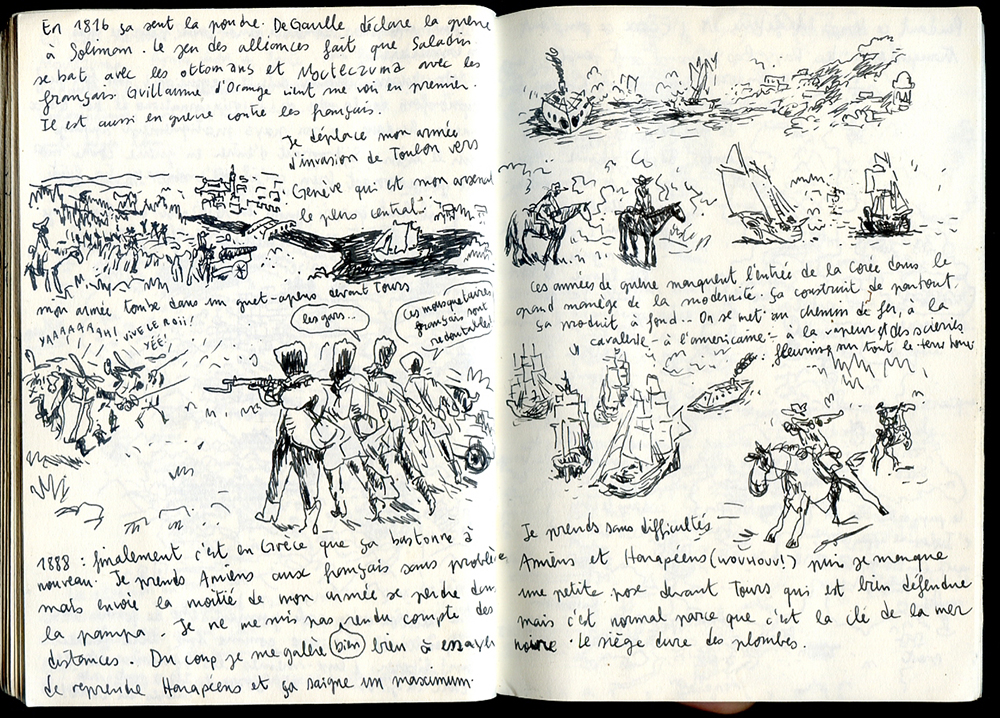 En 1816 ça sent la poudre. De Gaulle déclare la guerre
à Soliman. Le jeu des alliances fait que Saladin
se bat avec les ottomans et Moctezuma avec les
français Guillaume d'Orange vient me voir en premier.
Il est aussi en guerre contre les français.
Je déplace mon armée
d'invasion de Toulon vers
Genève qui est mon arsenal
le plus central.
mon armée tombe dans un guet-apens devant Tours
YAAAAAAAH! VIVE LE ROI!!
YÉÉ!
les gars...
Ces mousquetaires
français sont
redoutables
1888 : finalement c'est en Grèce que ça bastonne à
nouveau. Je prends Amiens aux français sans problème
mais envoie la moitié de mon armée se perdre dans
la pampa. Je ne me suis pas rendu compte des
distances. Du coup je me galère bien bien à essayer
de reprendre Harapéens et ça saigne un maximum.
Ces années de guerre marquent l'entrée de la Corée dans le
grand manège de la modernité. Ça construit de partout,
ça produit à fond... On se met au chemin de fer, à la
cavalerie - à l'américaine - à la vapeur et des scieries
fleurissent sur tout le territoire.
Je prends sans difficultés
Amiens et Harapéens (wouhouu!) puis je marque
une petite pose devant Tours qui est bien défendue
mais c'est normal parce que c'est la clé de la mer
noire. Le siège dure des plombes.